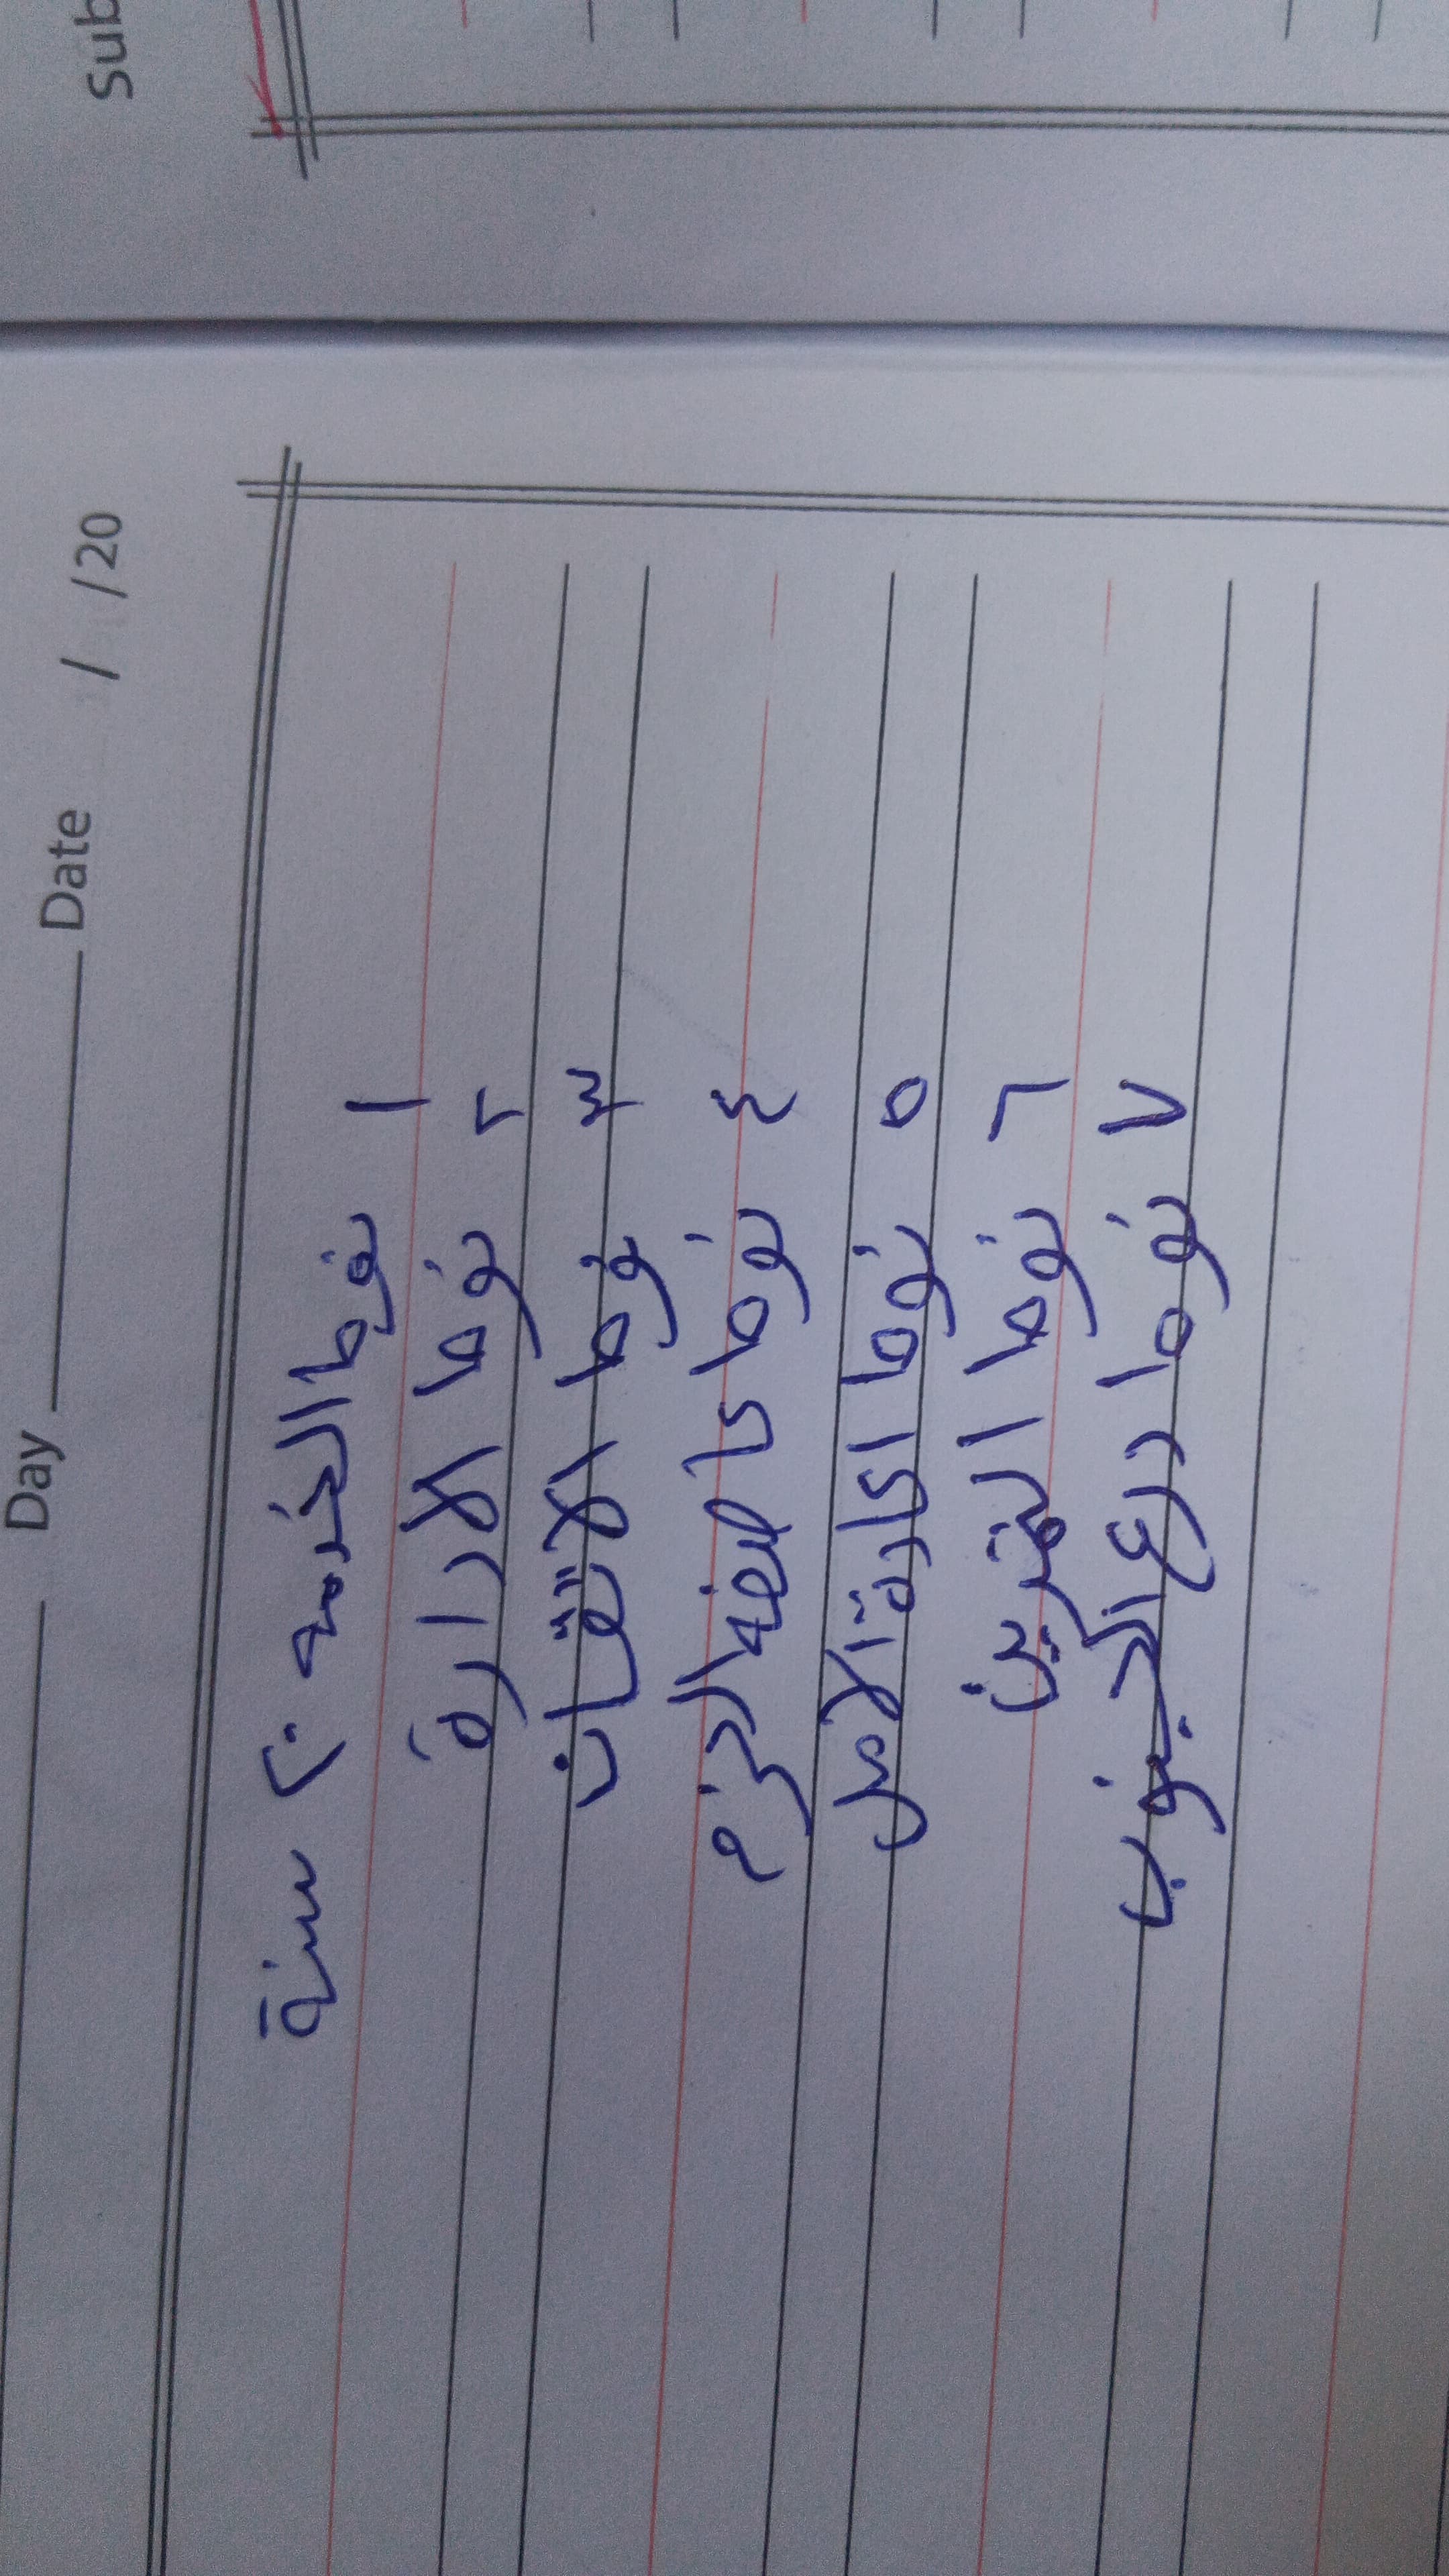 Sub
Day Date / /20
١ نوط الخدمه ٢٠ سنة
٢ نوط الادارة
٣ نوط الاتقان
٤ نوط عاصفه الحزم
٥ نوط اعادة الامل
٦ نوط التمرين
٧ نوط درع الجنوب